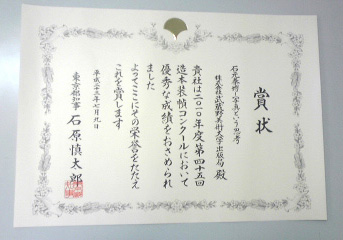 賞状
石元泰博・写真という思考
株式会社武蔵野美術大学出版局 殿
貴社は二〇一〇年度第四十五回
造本装幀コンクールにおいて
優秀な成績をおさめられ
ました
よってここにその栄誉をたたえ
これを賞します
平成二十三年七月九日
東京都知事 石原慎太郎